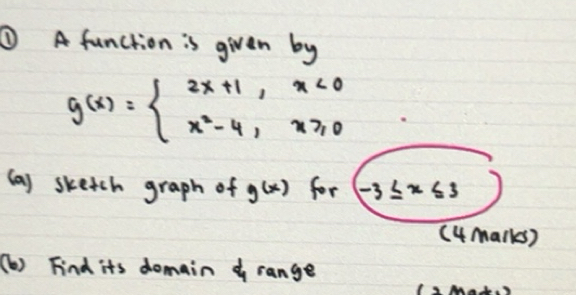 ① A function is given by
g(x) = { 2x + 1 , x < 0
x² - 4 , x ≥ 0
(a) sketch graph of g(x) for -3 ≤ x ≤ 3
(4 marks)
(b) Find its domain & range
(2 Marks)